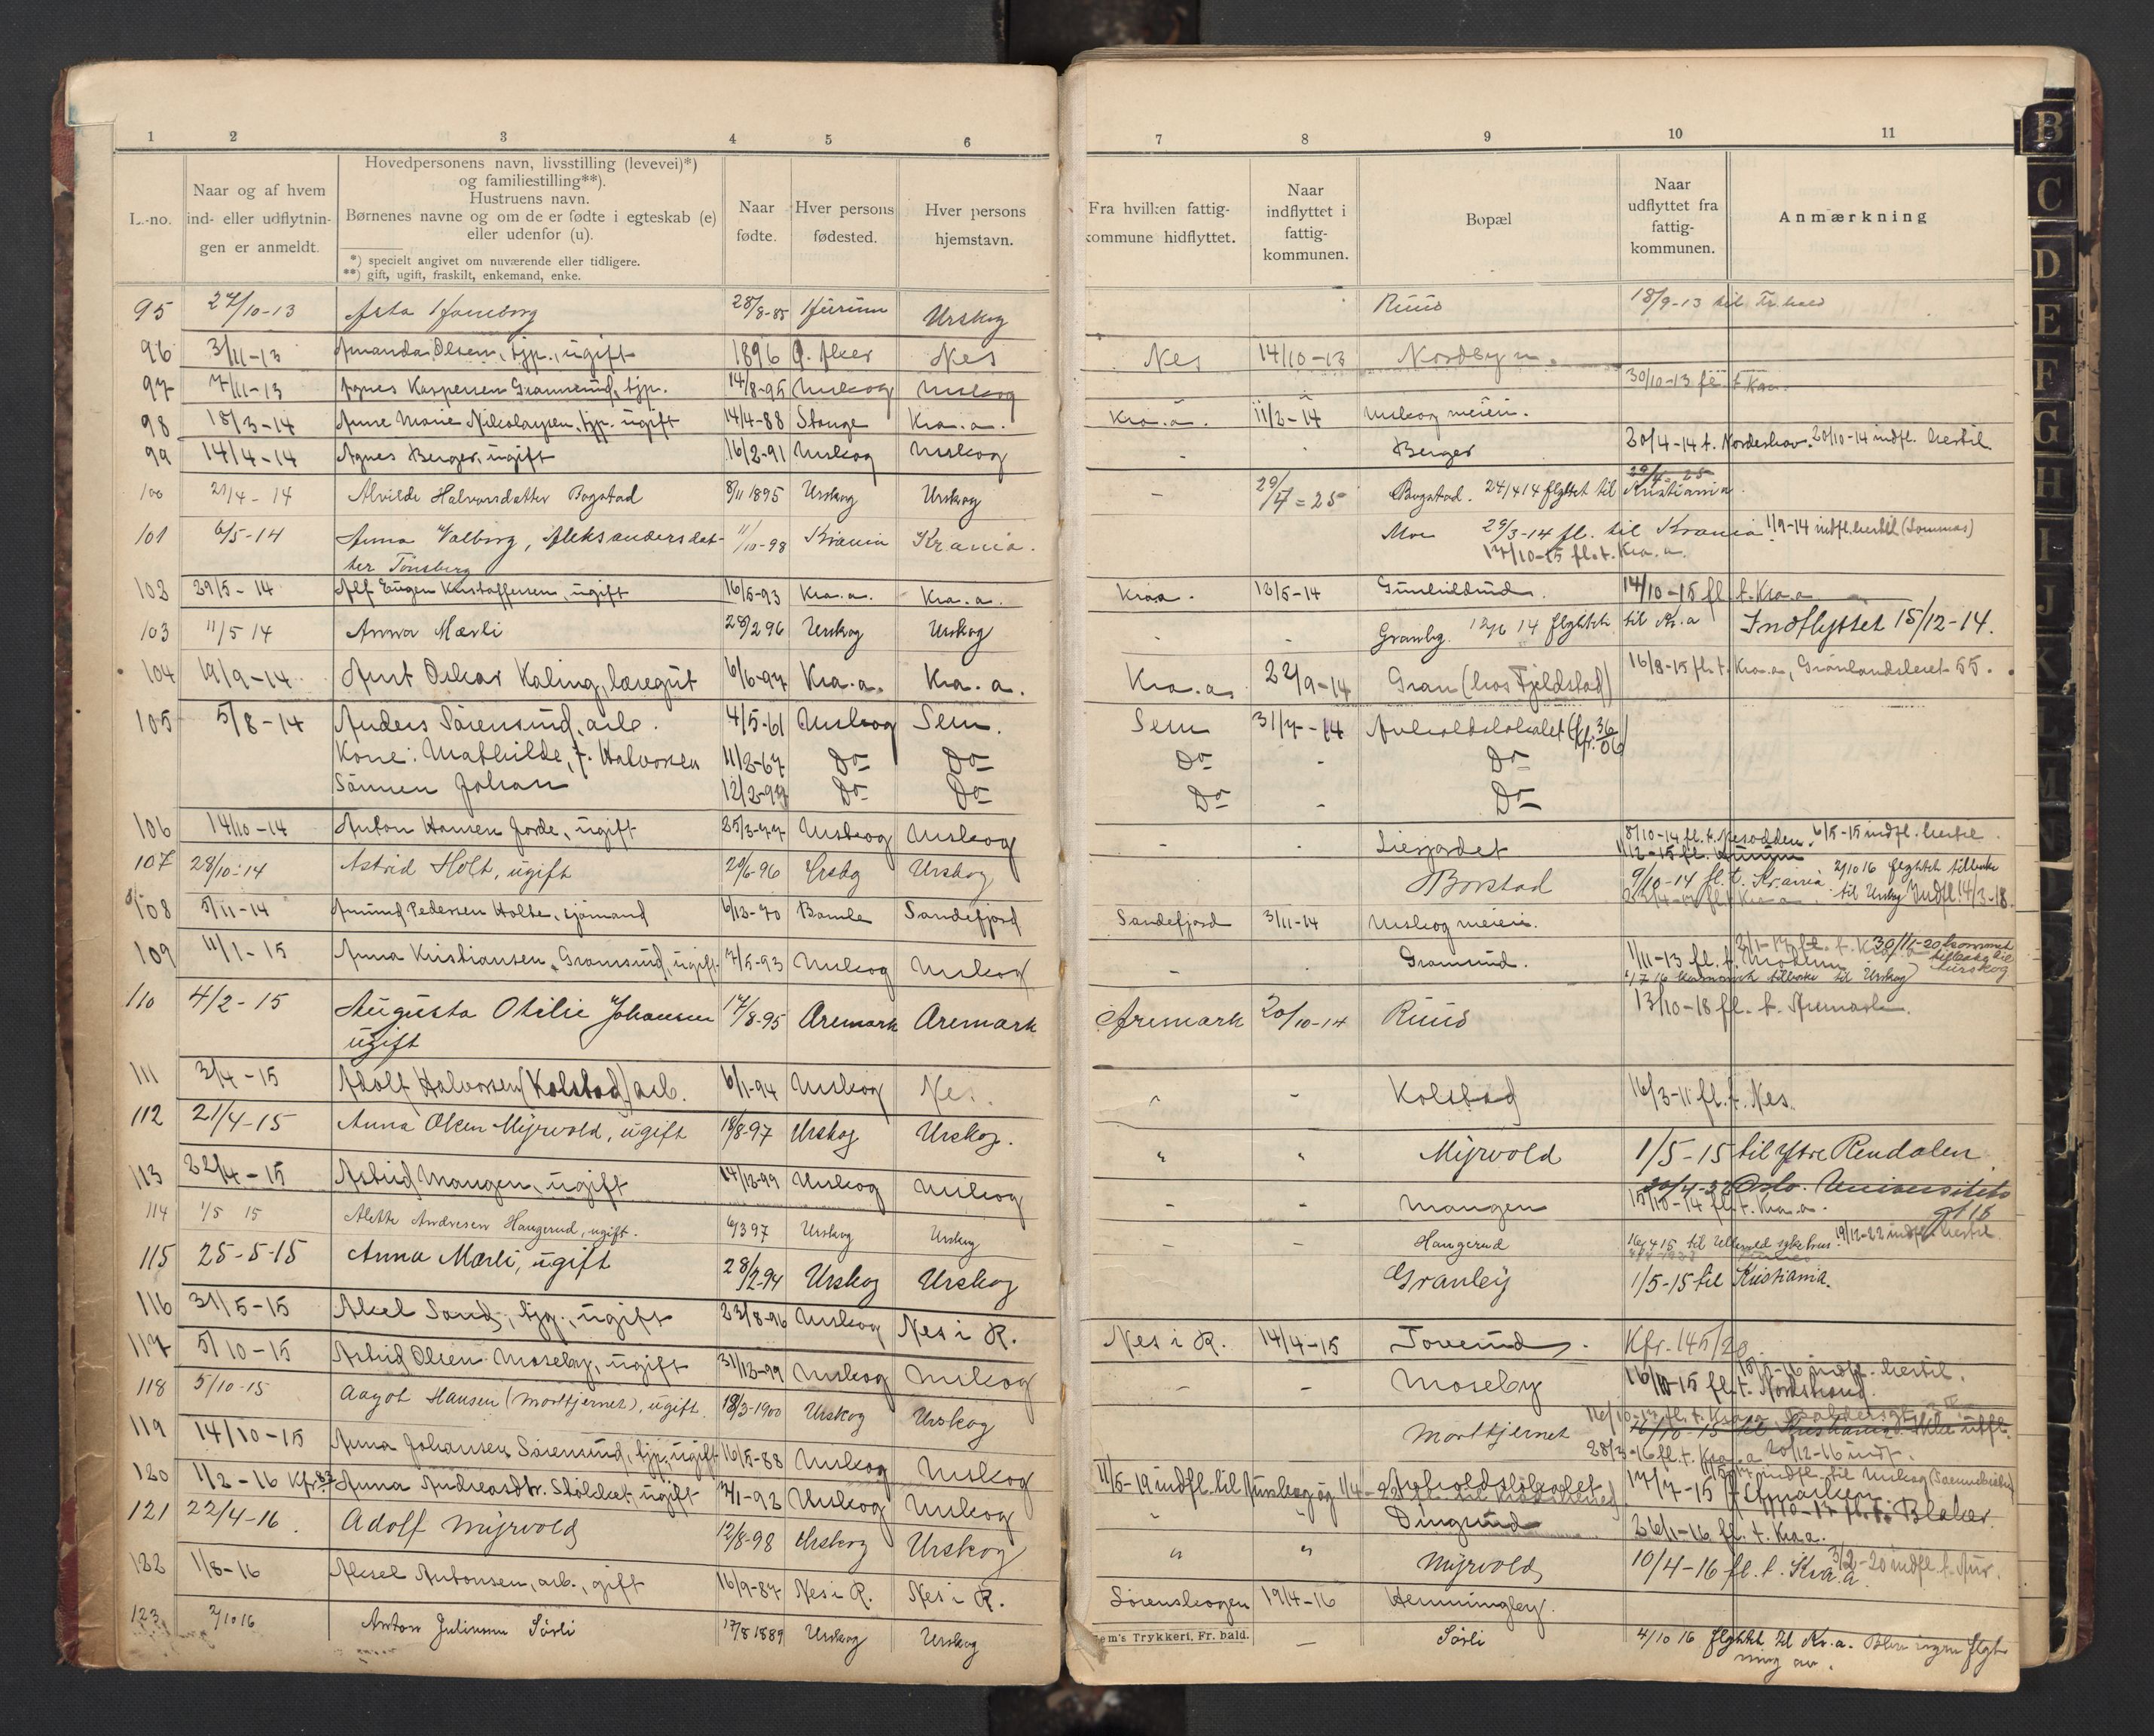 1 2 3 4 5 6 7 8 9 10 11
L.-no.
Naar og af hvem
ind- eller udflytnin-
gen er anmeldt.
Hovedpersonens navn, livsstilling (levevei)*)
og familiestilling**).
Hustruens navn.
Børnenes navne og om de er fødte i egteskab (e)
eller udenfor (u).
*) specielt angivet om nuværende eller tidligere.
**) gift, ugift, fraskilt, enkemand, enke.
Naar
fødte.
Hver persons
fødested.
Hver persons
hjemstavn.
Fra hvilken fattig-
kommune hidflyttet.
Naar
indflyttet i
fattig-
kommunen.
Bopæl
Naar
udflyttet fra
fattig-
kommunen.
Anmærkning
95 27/10-13 Asta 28/8-85 Urskog Ruud 18/9-13 til Fr.hald
96 3/11-13 Amanda Olsen, tjp., ugift 1896 Ø. Aker Nes Nes 14/10-13 Nordby
97 7/11-13 Agnes Kaspersen Gramsrud, tjp. 14/8-95 Urskog Urskog 30/10-13 fl. t. Kra.
98 18/3-14 Anne Marie Nikolaysen, tjp. ugift 14/4-88 Stange Kra.a. Kra.a. 11/2-14 Urskog meieri.
99 14/4-14 Agnes Berger, ugift 16/2-91 Urskog Urskog - Berger 20/4-14 t. Nordeskov. 20/10-14 indfl. hertil.
100 21/4-14 Alvilde Halvorsdatter Bogstad 8/11 1895 Urskog Urskog - 29/4=25 Bogstad. 24/4 14 flyttet til Kristiania. 29/4-25
101 6/5-14 Anna Valborg, Aleksandersdat- 11/10-98 Krania Krania. Moe 29/3-14 fl. til Krania 1/9-14 indfl. hertil (Lommas)
ter Tönsberg 17/10-15 fl. t. Kra.a.
102 29/5-14 Alf Eugen Kristoffersen, ugift 16/5-93 Kra.a. Kra.a. Kraa. 13/5-14 Gunhildrud. 14/10-15 fl. t. Kra.a
103 11/5 14 Anna Mærli 28/2 96 Urskog Urskog - - Granby. 14 flyttet til Kr.a Indflyttet 15/12-14.
104 19/9-14 Arnt Oskar Kaling, læregut 6/6-97 Kra.a. Kra.a. Kra.a. 22/9-14 Gran (hos Fjeldstad) 16/8-15 fl. t. Kra.a, Grönlandsleret 55.
105 5/8-14 Anders Sörensrud, arb. 4/5-61 Urskog Sem. Sem 31/7-14 Avholdslokalet (kfr. 36/06)
Kone: Mathilde, f. Halvorsen 11/2-67 Do Do Do - Do
Sönnen Johan 12/2-99 Do Do Do - Do
106 14/10-14 Anton Hansen Jorde, ugift 25/3-77 Urskog Urskog - Lierjordet 8/10-14 fl. t. Nesodden. 6/5-15 indfl. hertil.
107 28/10-14 Astrid Holt, ugift 29/6-96 Urskog Urskog Borstad 9/10-14 fl. t. Krania. 2/10 16 flyttet tilbake
til Urskog Indfl. 14/3-18.
108 5/11-14 Amund Pedersen Holte, sjömand 6/12-70 Bamle Sandefjord Sandefjord 3/11-14 Urskog meieri.
109 11/1-15 Anna Kristiansen Gramsrud, ugift 7/5-93 Urskog Urskog - Gramrud. 1/11-13 fl. t. 30/11-20 kommet
tilbake til Urskog
110 4/2-15 Augusta Otilie Johansen 17/8-95 Aremark Aremark Aremark 20/10-14 Ruud 13/10-18 fl. t. Aremark.
ugift
111 3/4-15 Adolf Halvorsen (Kolstad) arb. 6/1-94 Urskog Nes. - Kolstad 16/3-11 fl. t. Nes.
112 21/4-15 Anna Olsen Myrvold, ugift 18/8-97 Urskog Urskog. " " Myrvold 1/5-15 til Ytre Rendalen.
113 22/4-15 Astrid Mangen, ugift 14/12-99 Urskog Urskog - - Mangen 15/10-14 fl. t. Kra.a. 20/4-32 Oslo. Universitets
gt 18
114 1/5 15 Alette Andresen Haugerud, ugift. 6/3 97 Urskog Urskog - - Haugerud 16/4 15 til Ullevold sykehus. 19/12-22 indfl. hertil.
115 25-5-15 Anna Mærli, ugift 28/2-94 Urskog Urskog Granby 1/5-15 til Kristiania.
116 31/5-15 Aksel Sand, tjg., ugift 23/8-96 Urskog Nes i R. Nes i R. 14/4-15 Toverud. Kfr. 145/20.
117 5/10-15 Astrid Olsen Moseby, ugift 31/12-99 Urskog Urskog - - Moseby 16/10-15 fl. t. Nordstrand. indfl. hertil.
118 5/10-15 Aagot Hansen (Morttjernet), ugift 18/3-1900 Urskog Urskog Morttjernet 16/10-15 til Kristiania. Ikke utfl.
28/3-16 fl. t. Kra.a 20/12-16 indf.
119 14/10-15 Anna Johansen Sörensrud, tjp, ugift 16/5-88 Urskog Urskog 11/5-19 indfl. til Urskog og Avholdslokalet 17/7-15
120 1/2-16 Kfr. 83 Anna Andreasdtr. Stöldet, ugift 7/1-92 Urskog Urskog " " Dingsrud 26/1-16 fl. t. Kra.a. Blaker.
121 22/4-16. Adolf Myrvold 12/8-98 Urskog Urskog " " Myrvold 10/4-16 fl. t. Kra.a. 3/2-20 indfl. t. Aur.
122 1/8-16 Aksel Antonsen, arb., gift 16/9-87 Nes i R. Nes i R. Sörenskogen 19/4-16 Hemmingby.
123 2/10 16 Anton Julinson Sörli 17/8 1889 Urskog Urskog - Sörli 4/10 16 flyttet til Kr.a. Blev ingen flyt-
ning av.
Trykkeri, Fr. hald.
B
C
D
E
F
G
H
I
J
K
L
M
N